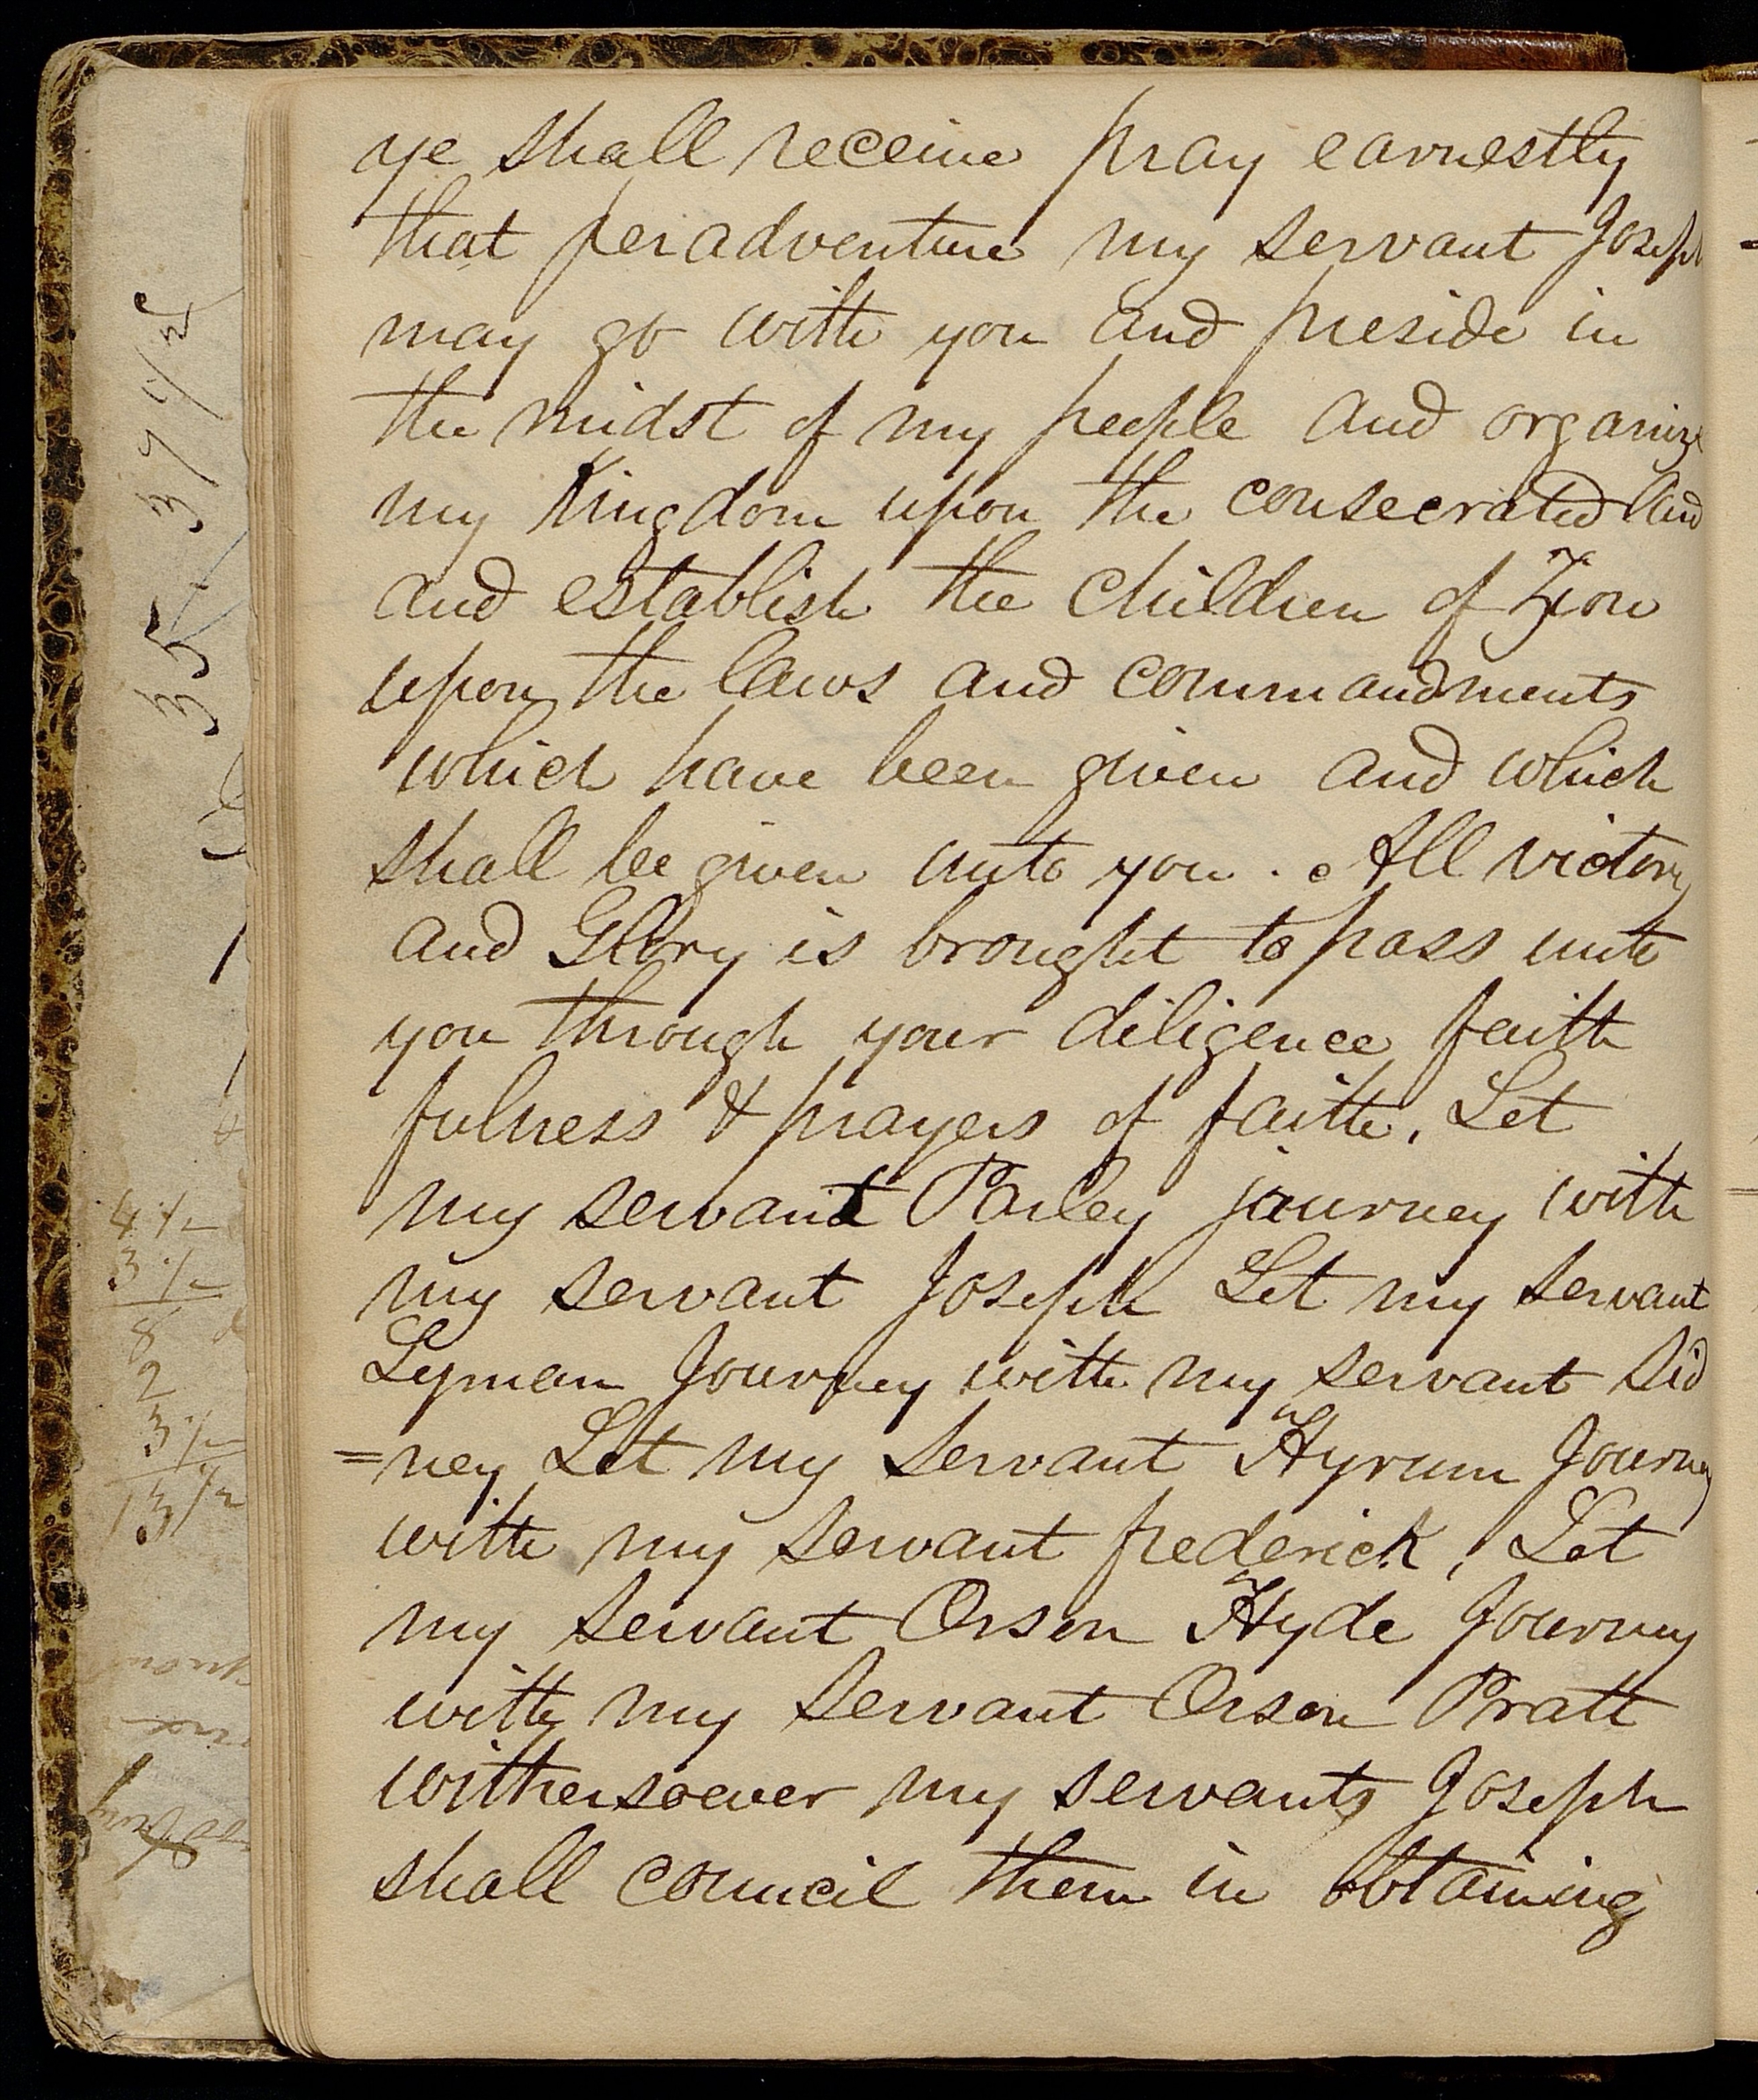 ye shall receive pray earnestly
that peradventure my servant Joseph
may go with you and preside in
the midst of my people and organize
my Kingdom upon the consecrated land
and establish the children of Zion
upon the laws and commandments
which have been given and which
shall be given unto you. All victory
and Glory is brought to pass unto
you through your diligence faith
fulness & prayers of faith. Let
my servant Parley journey with
my servant Joseph Let my servant
Lyman Journey with my servant Sid
=ney Let my servant Hyrum Journey
with my servant frederick, Let
my servant Orson Hyde Journey
with my servant Orson Pratt
withersoever my servants Joseph
shall council them in obtaining
37 1/2
35
4 1/2
3 1/2
8
2
3 1/2
13 1/2